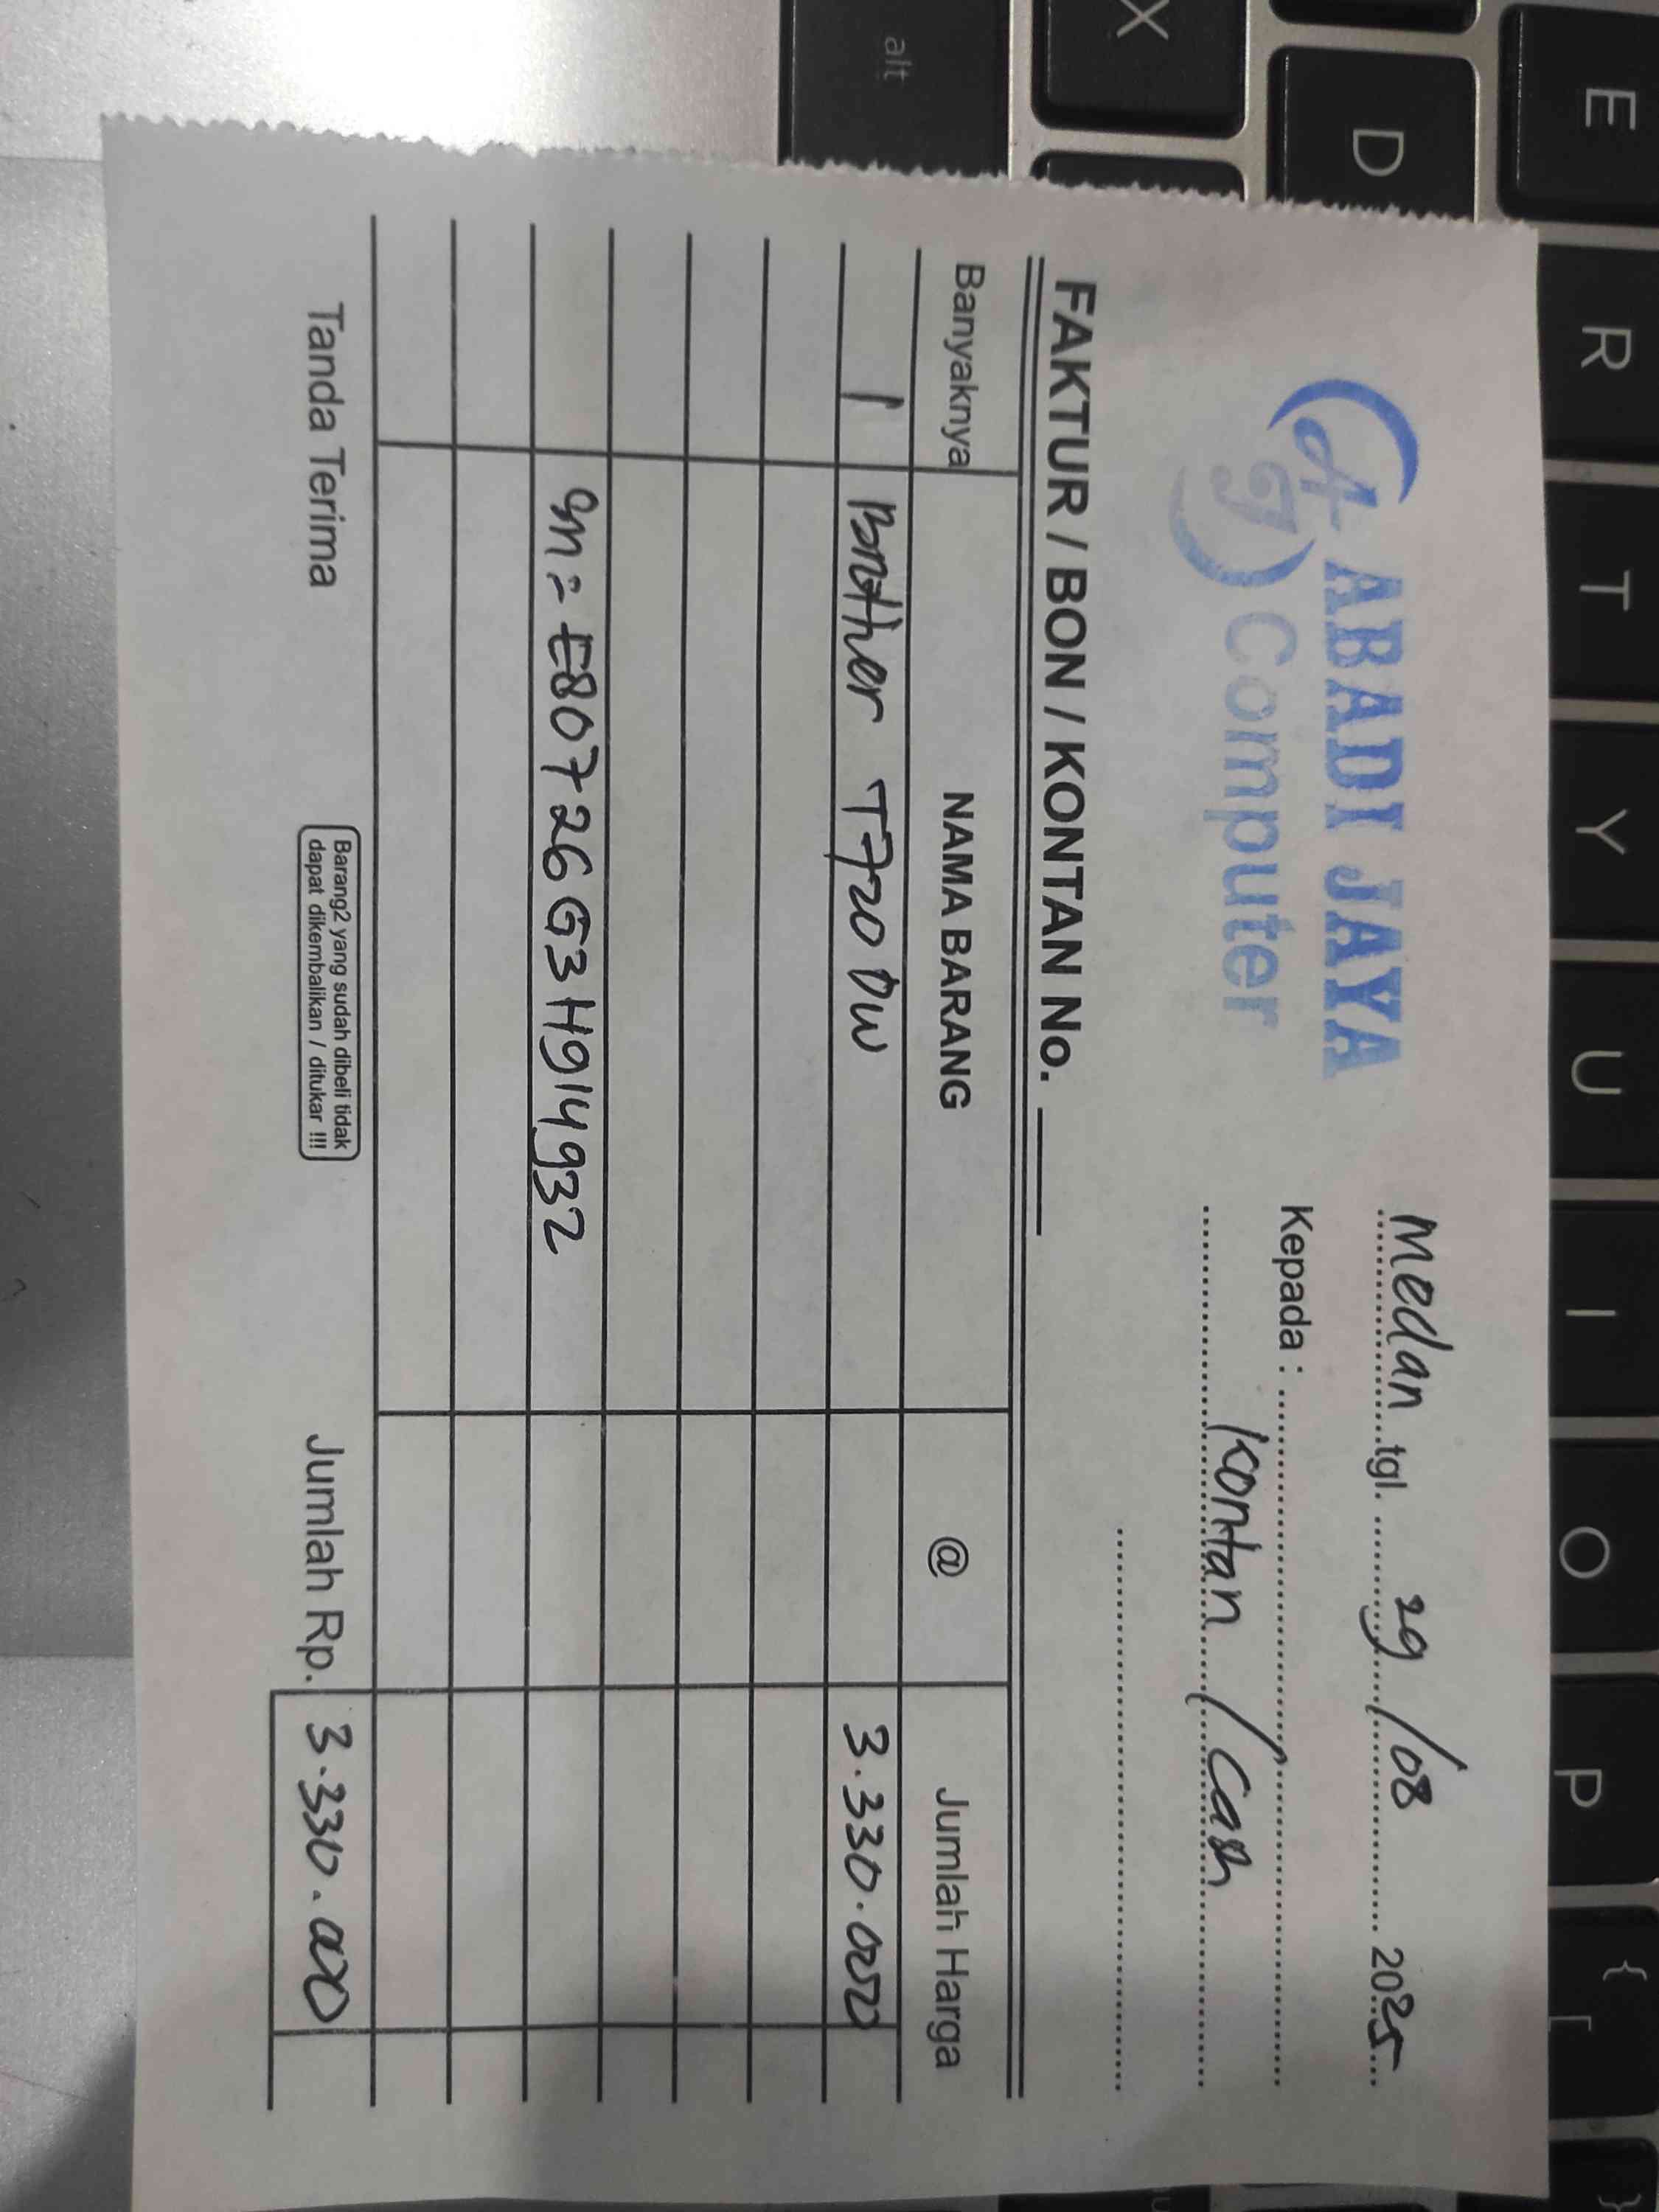 ABADI JAYA
AJ Computer
Medan tgl. 29/08 2025
Kepada :
Kontan / Cash
FAKTUR / BON / KONTAN No.
Banyaknya NAMA BARANG @ Jumlah Harga
1 Brother T720 DW 3.330.000
Sn : E80726G3H914932
Tanda Terima
Barang2 yang sudah dibeli tidak
dapat dikembalikan / ditukar !!!
Jumlah Rp. 3.330.000
alt
X
D
E
R
T
Y
U
I
O
P
{
[
}